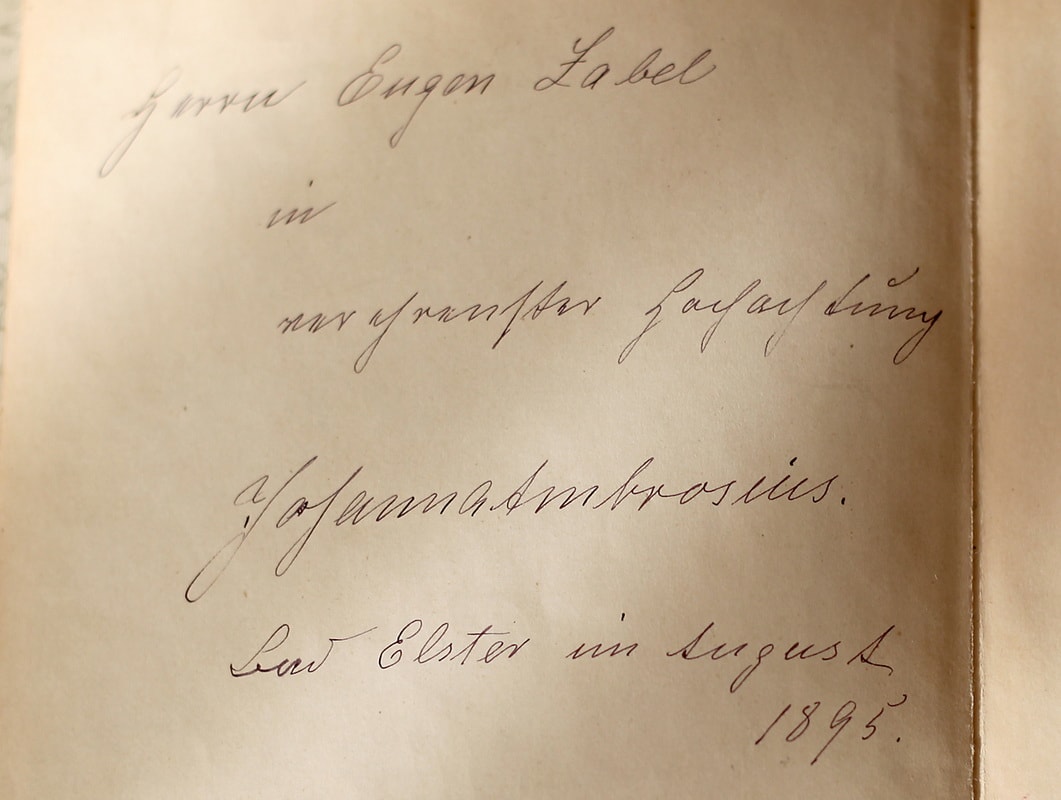 Herrn Eugen Zabel
in
verehrenster Hochachtung
Johanna Ambrosius.
Bad Elster im August
1895.